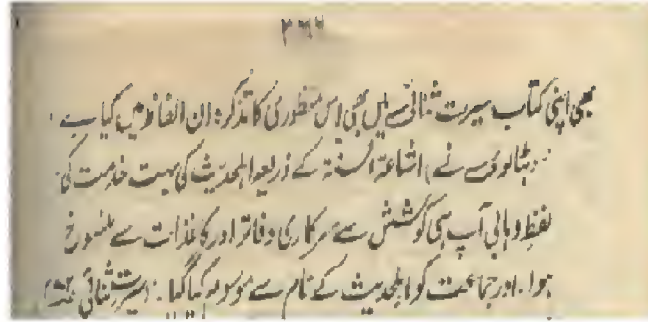 ۳۶۶
بھی اپنی کتاب سیرت ثنائی میں بھی اس منظوری کا تذکرہ ان الفاظ میں کیا ہے۔
بٹالوی نے اشاعۃ السنۃ کے ذریعہ اہلحدیث کی بہت خدمت کی۔
لفظ وہابی آپ ہی کی کوشش سے سرکاری دفاتر اور کاغذات سے منسوخ
ہوا۔ اور جماعت کو اہلحدیث کے نام سے موسوم کیا گیا۔ (سیرت ثنائی